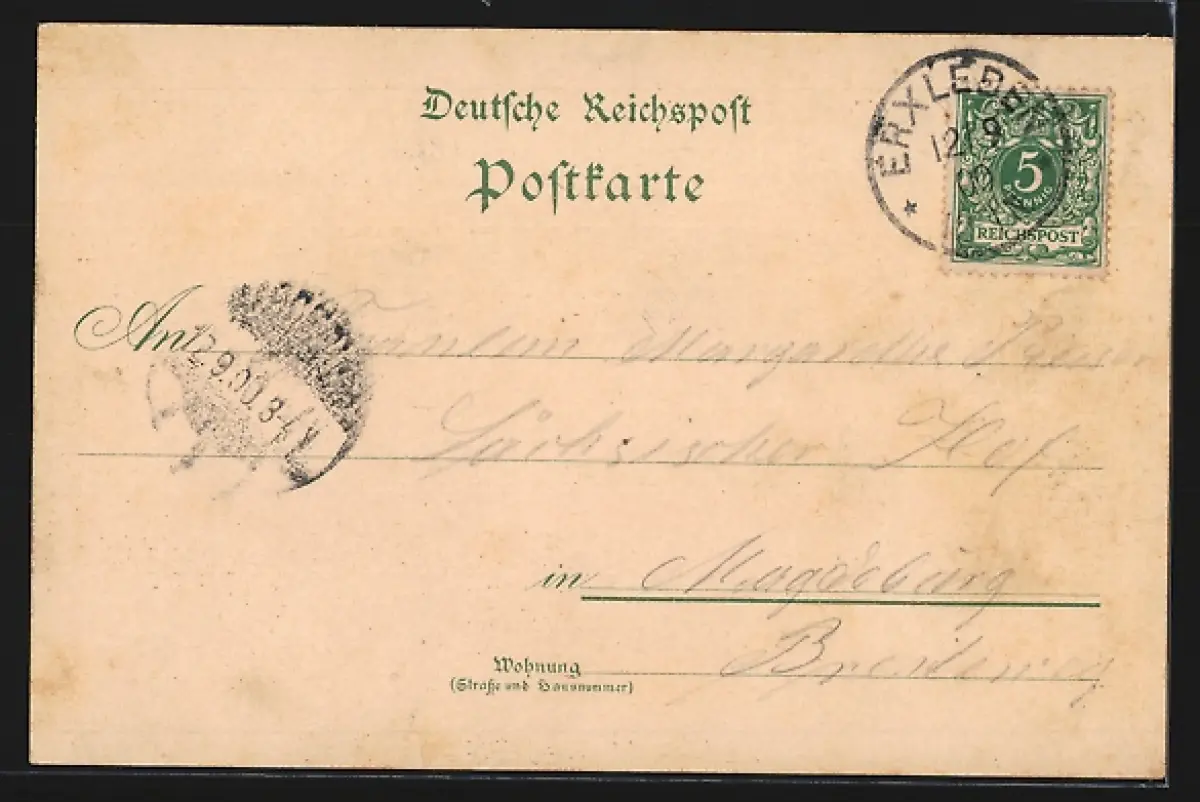 Deutsche Reichspost
Postkarte
ERXLEBEN
12/9
00
5
PFENNIG
REICHSPOST
An Fräulein Margarethe
12.9.00.3-4 V
Sächsischer Hof
in Magdeburg
Wohnung Breiteweg
(Straße und Hausnummer)